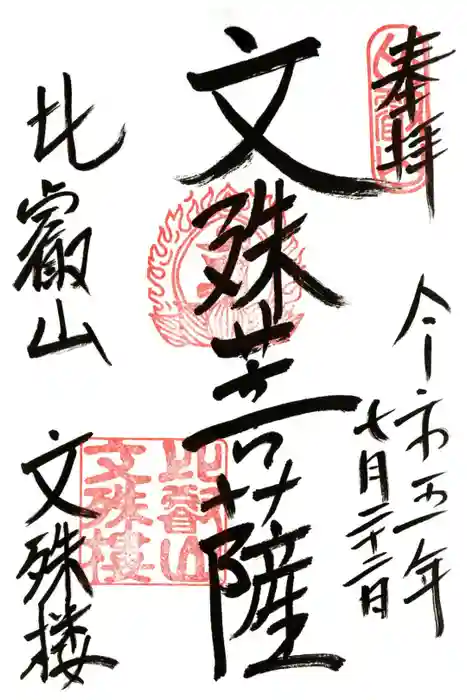 奉拝
令和五年
七月二十二日
文殊菩薩
比叡山
文殊楼
比叡山
文殊楼